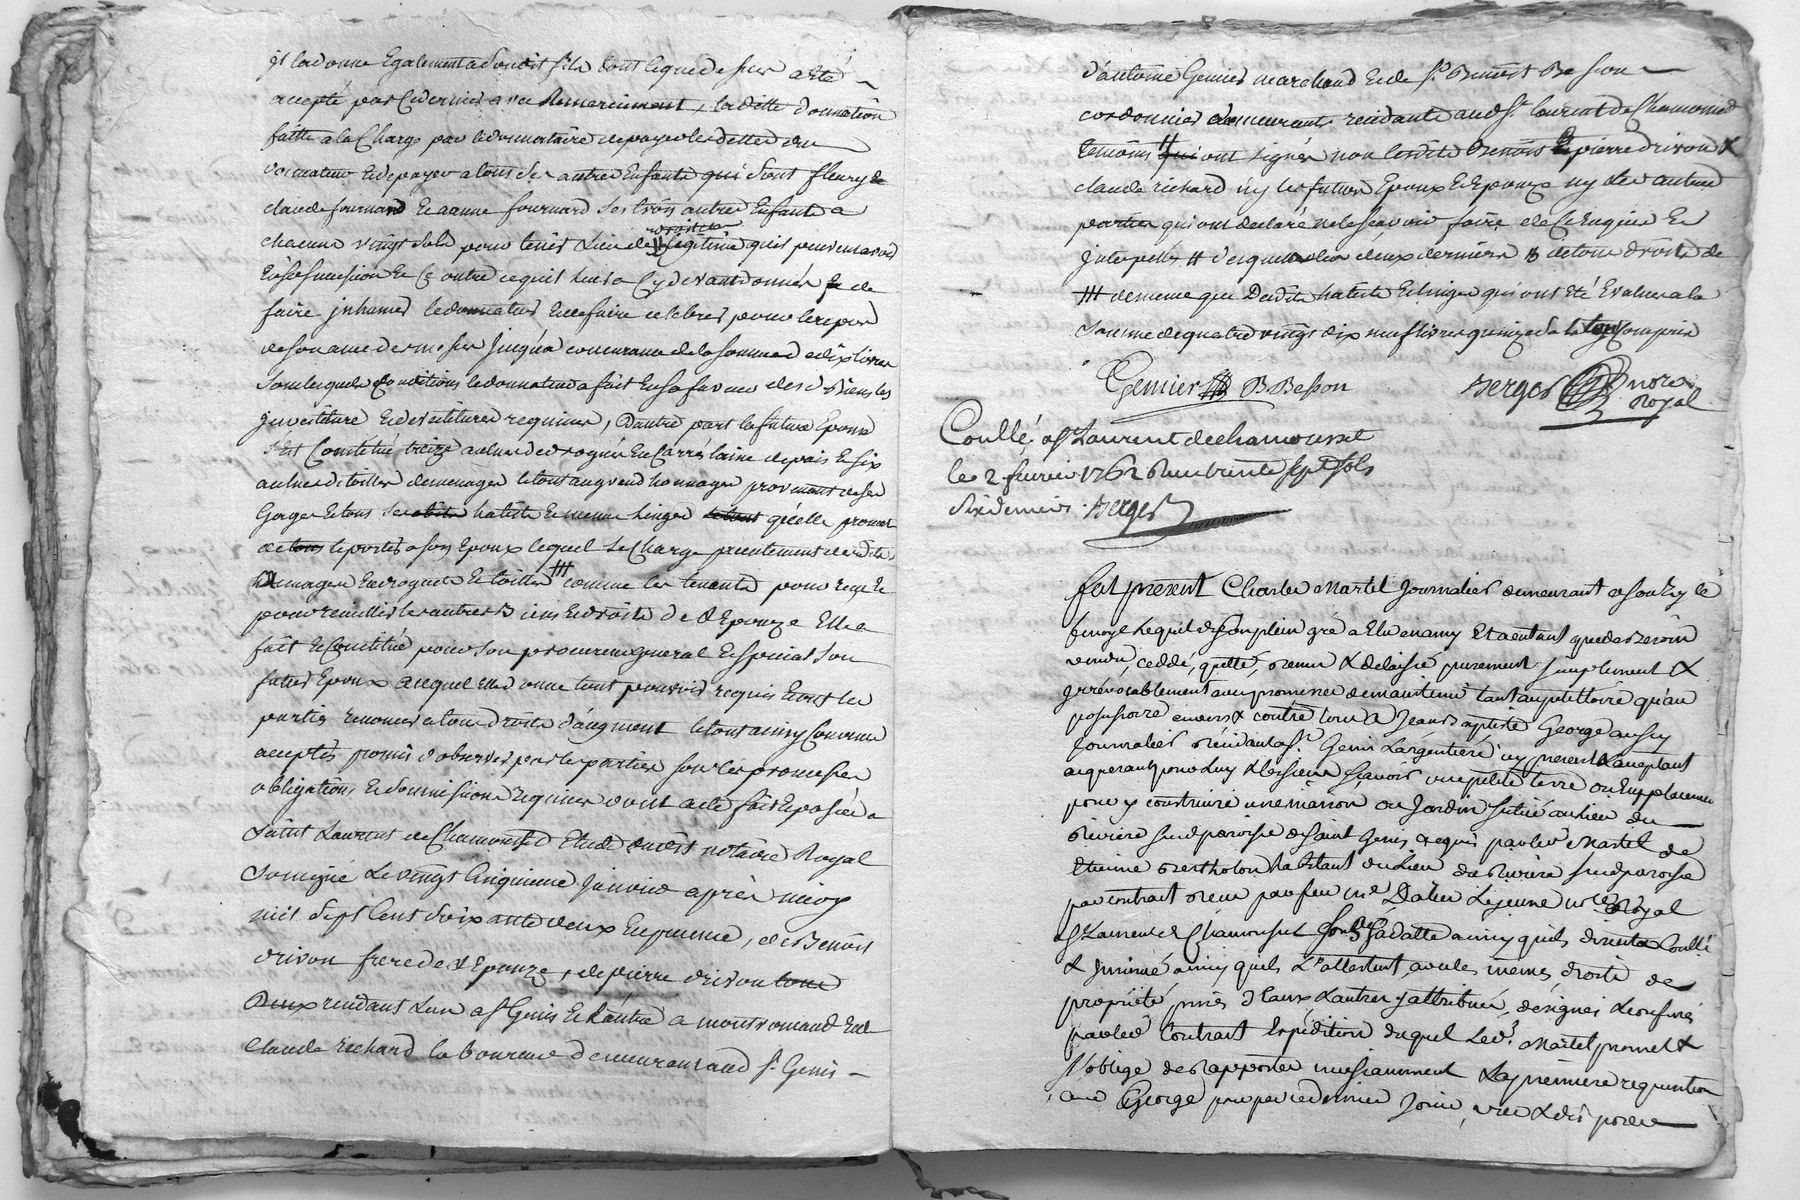 jl la donne Egalement a sondit fils tout lequel de sur a Eté
accepté par Ce dernier avec Remerciement, laditte donnation
faitte a la Charge par le donnataire de payer les dettes du
donnateur Et de payer a tous ses autres Enfants qui sont fleury &
claude fournand Et anne fournand ses trois autres Enfants a
chacun vingt sols pour tenir Lieu de droits de legitime qu'ils peuvent avoir
En sa succession Et Ce outre ce qu'il leur a Cy devant donnés & de
faire jnhumer le donnateur Et de faire celebrer pour le repos
de son ame des messes jusqu'a concurrance de la somme de dix livres
sous lesquelles Conditions le donnateur a fait En sa faveur des d. Biens les
jnvestiture Et devestitures requises, D'autre part la future Epouse
s'Est Constitué treize aulnes de droguet En Carré laine depais Et six
aulnes de toilles de menages le tout au grand hommages provenant de ses
Gages Et tous ses habits Et menus Linges qu'elle promet
de porter a son Epoux lequel se Charge presentement desdits
homages En droguet Et toilles ### comme les tenants pour reçu &
pour recueillir les autres Biens Et droits de l'Epouze Elle a
fait Et Constitué pour son procureur general Et special son
futur Epoux auquel Elle donne tout pouvoir requis Et ont les
parties renoncés a tous droits d'augment le tout ainsy Convenu
acceptés promis d'observer par les parties sous les promesses
obligations, Et soumissions requises dont acte fait Et passé a
saint Laurent de Chamousset Etude dudit notaire Royal
soussigné Le vingt Cinquieme Janvier après midy
mil sept Cent soixante deux En presence, de Benoit
drivon frere de l'Epouze, de pierre drivon tous
Deux residants L'un a st Genis Et L'autre a montromand Et de
Claude richard laboureur demeurant aud st Genis
d'antoine Genier marchand Et de sr. Benoit Besson
cordonnier demeurants residants aud st. laurent de Chamousset
temoins qui ont signés non lesdits Benoit & pierre drivon &
claude richard n'y les futurs Epoux Et Epouze ny les autres
parties qui ont declaré ne le scavoir faire de Ce Enquis Et
jnterpellés // desquels les deux derniers B de tous droits de
### de meme que Desdits habits Et linges qui ont Eté Evalués a la
somme de quatre vingt dix neuf livres quinze sols le tout Compris
Genier B Besson Berger nore
Royal
Coullé. a st Laurent de chamousset
le 2 fevrier 1762 Reçu trente sept sols
six deniers. Berger
fut present Charles Martel Journalier demeurant a Souzy le
lequel de son plein gré a Eté et en tant que de Besoin
vendu, ceddé, quitté, remis & delaissé purement simplement &
jrrévocablement avec promesse de maintenir tant au petittoire qu'au
possessoire envers & contre tous a Jean Baptiste George aussy
Journalier résidant a st. Genis L'argentiere cy present & acceptant
acquerant pour Luy & les siens sçavoir une petite terre ou Emplacement
pour y construire une maison ou Jardin situé au lieu du
riviere susd. paroisse de saint Genis acquis par led Martel de
Etienne Bertholon habitant du Lieu de la Riviere susd paroisse
par contrat Receu par feu me Dalier Lejeune nore Royal
a st Laurent de Chamousset sous sa datte ainsy quils dirent Coullé
& jnsinué ainsy quils L'attestent avec les mêmes droits de
propriété, prises d'eaux & autres y attribués, désignés & confinés
par led. Contract Expédition duquel Led. Martel promet &
s'oblige de Rapporter jncessamment a La premiere requisition
aud George pour par ce dernier Jouir, user & dis poser